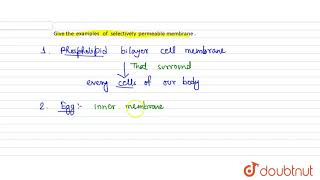 Give the examples of selectively permeable membrane.
1. Phospholipid bilayer cell membrane
That surround
every cells of our body
2. Egg:- inner membrane
doubtnut